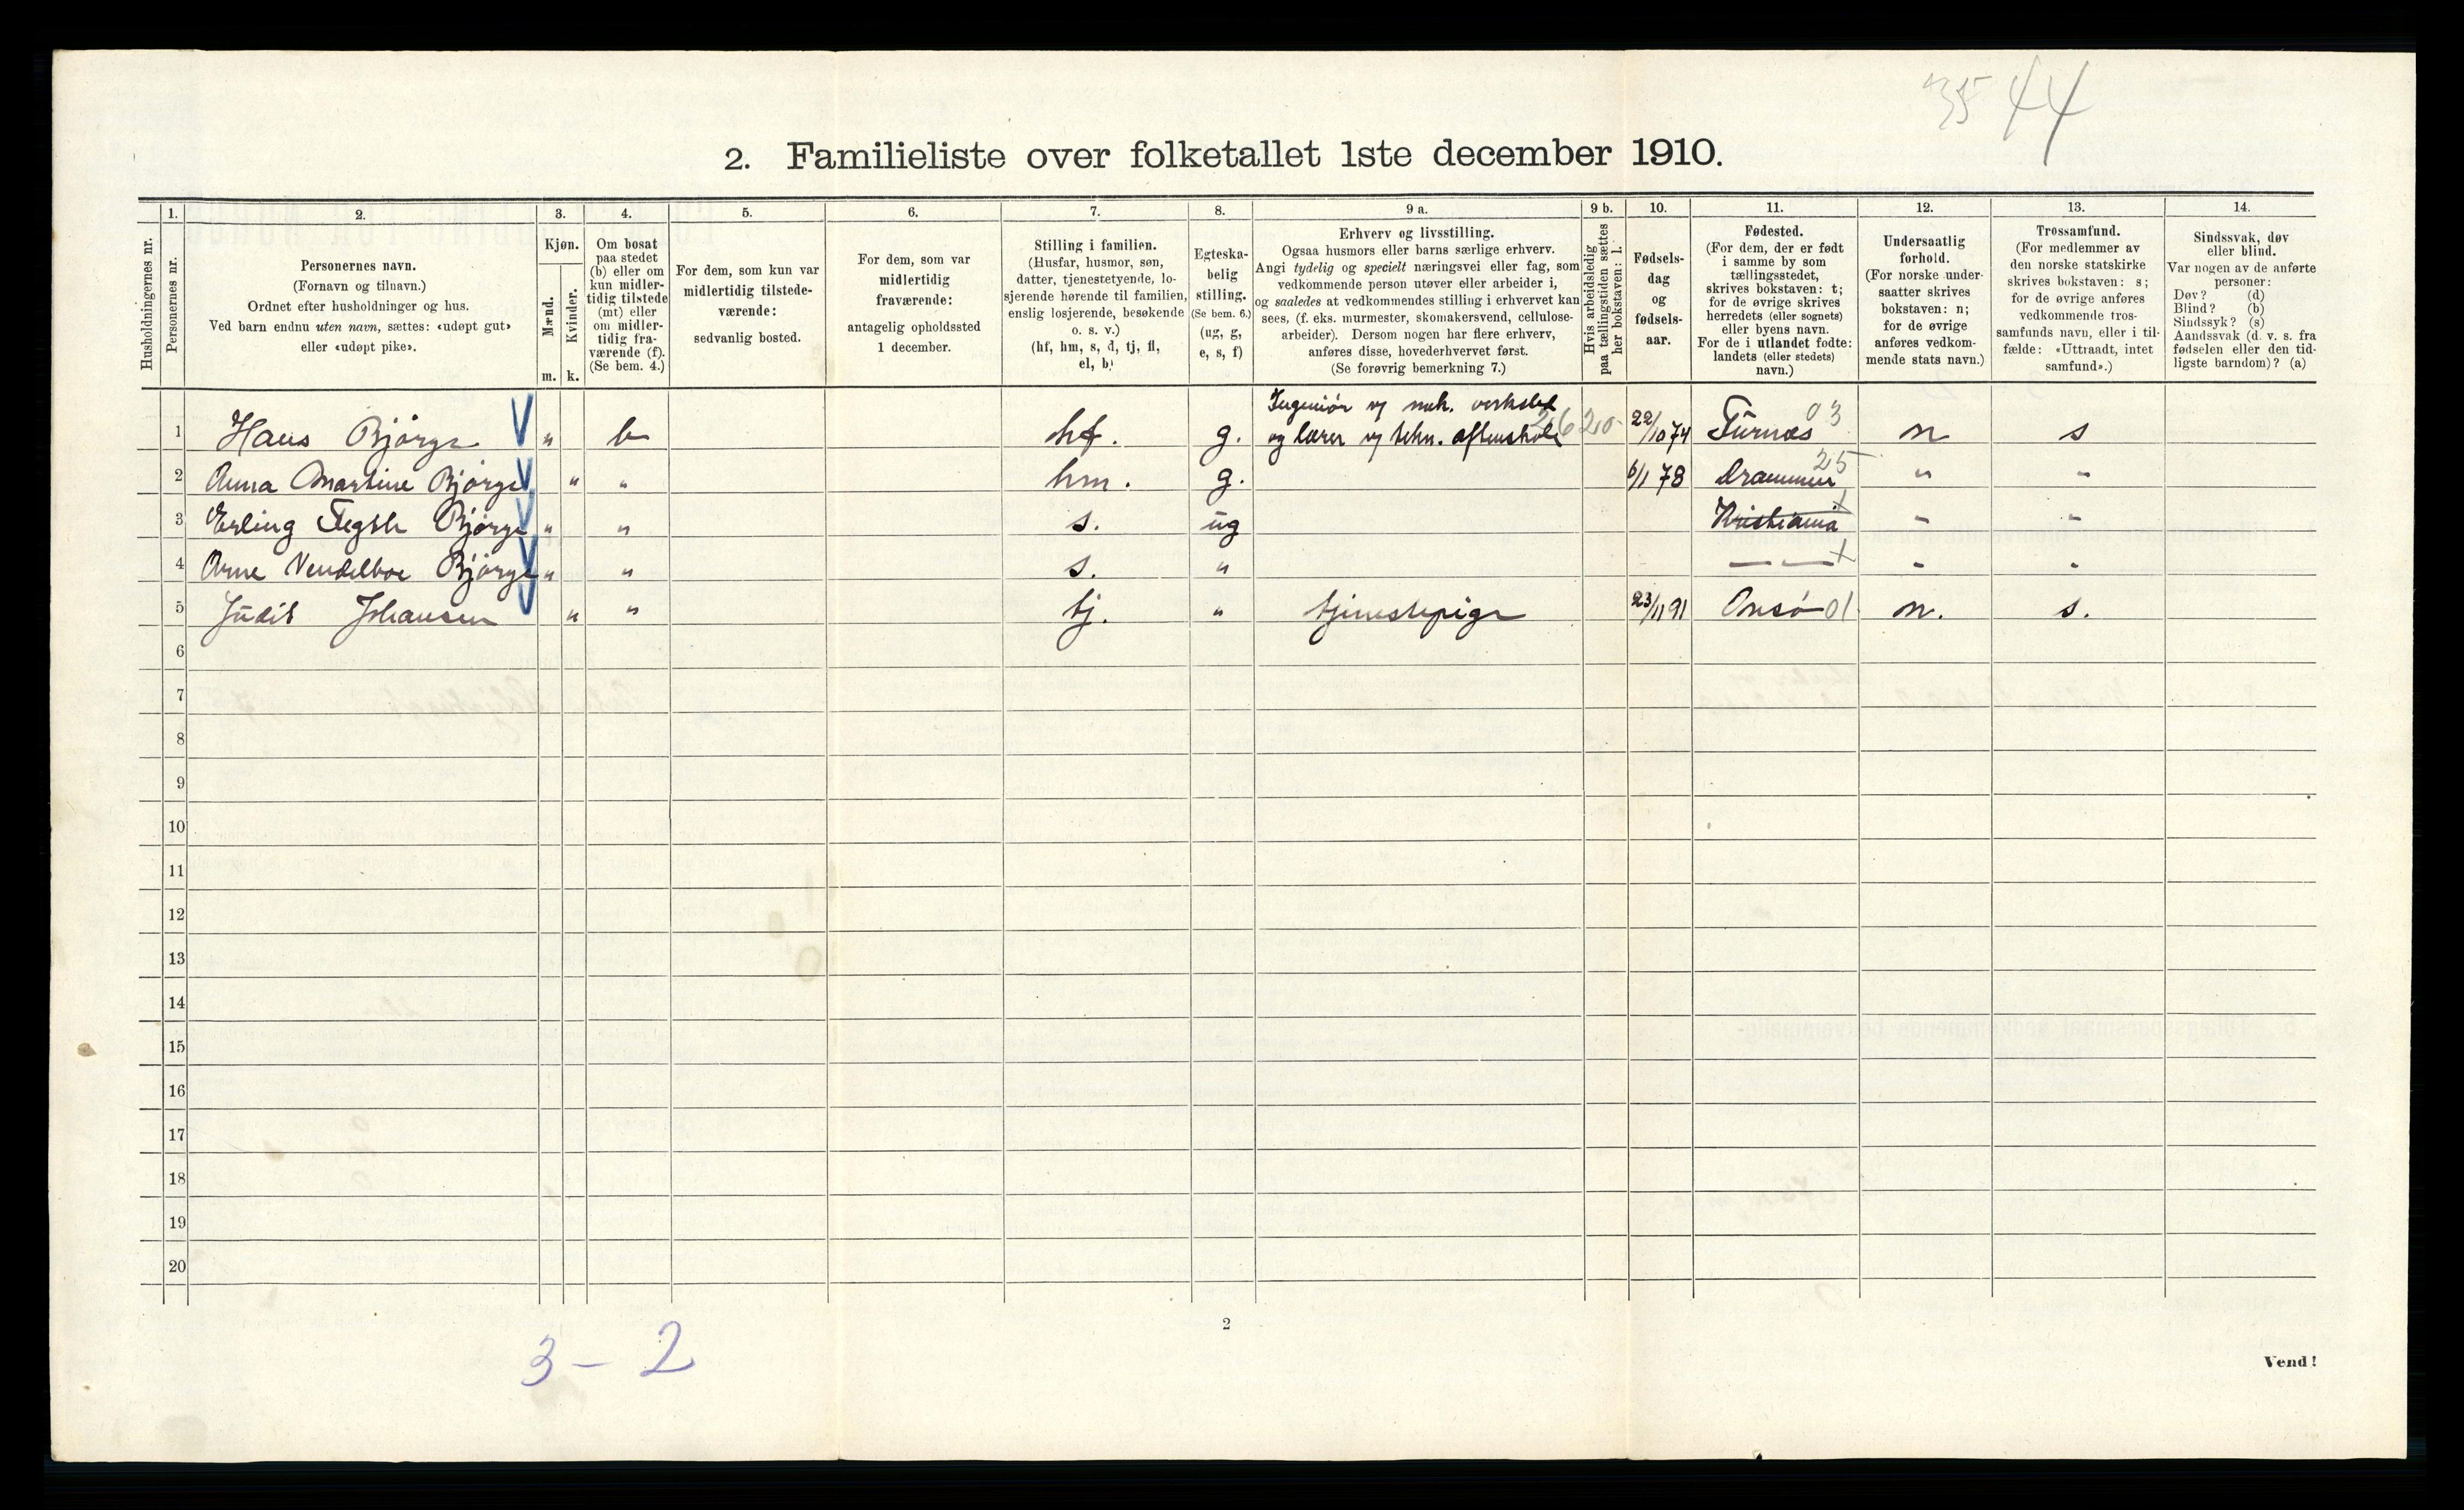 35 44
2. Familieliste over folketallet 1ste december 1910.
Husholdningernes nr.
1.
Personernes nr.
2.
Personernes navn.
(Fornavn og tilnavn.)
Ordnet efter husholdninger og hus.
Ved barn endnu uten navn, sættes: «udøpt gut»
eller «udøpt pike».
3.
Kjøn.
Mænd.
Kvinder.
m. k.
4.
Om bosat
paa stedet
(b) eller om
kun midler-
tidig tilstede
(mt) eller
om midler-
tidig fra-
værende (f).
(Se bem. 4.)
5.
For dem, som kun var
midlertidig tilstede-
værende:
sedvanlig bosted.
6.
For dem, som var
midlertidig
fraværende:
antagelig opholdssted
1 december.
7.
Stilling i familien.
(Husfar, husmor, søn,
datter, tjenestetyende, lo-
sjerende hørende til familien,
enslig losjerende, besøkende
o. s. v.)
(hf, hm, s, d, tj, fl,
el, b)
8.
Egteska-
belig
stilling.
(Se bem. 6.)
(ug, g,
e, s, f)
9 a.
Erhverv og livsstilling.
Ogsaa husmors eller barns særlige erhverv.
Angi tydelig og specielt næringsvei eller fag, som
vedkommende person utøver eller arbeider i,
og saaledes at vedkommendes stilling i erhvervet kan
sees, (f. eks. murmester, skomakersvend, cellulose-
arbeider). Dersom nogen har flere erhverv,
anføres disse, hovederhvervet først.
(Se forøvrig bemerkning 7.)
9 b.
Hvis arbeidsledig
paa tællingstiden sættes
her bokstaven: l.
10.
Fødsels-
dag
og
fødsels-
aar.
11.
Fødested.
(For dem, der er født
i samme by som
tællingsstedet,
skrives bokstaven: t;
for de øvrige skrives
herredets (eller sognets)
eller byens navn.
For de i utlandet fødte:
landets (eller stedets)
navn.)
12.
Undersaatlig
forhold.
(For norske under-
saatter skrives
bokstaven: n;
for de øvrige
anføres vedkom-
mende stats navn.)
13.
Trossamfund.
(For medlemmer av
den norske statskirke
skrives bokstaven: s;
for de øvrige anføres
vedkommende tros-
samfunds navn, eller i til-
fælde: «Uttraadt, intet
samfund».)
14.
Sindssvak, døv
eller blind.
Var nogen av de anførte
personer:
Døv? (d)
Blind? (b)
Sindssyk? (s)
Aandssvak (d. v. s. fra
fødselen eller den tid-
ligste barndom)? (a)
Ingeniør v/ mek. verksted
1 Hans Bjørge V " b hf. g. og lærer v/ tekn. aftenskole 2620- 22/10 74 Furnæs 03 n s
2 Anna Martine Bjørge V " " hm. g. 6/1 78 Drammen 25 " "
3 Erling Bjørge V " " s. ug Kristiania + " "
4 Arne Vendelboe Bjørge V " " s. " — — + " "
5 Judit Johansen V " " tj. " tjenestepige 23/11 91 Onsø 01 n. s.
6
7
8
9
10
11
12
13
14
15
16
17
18
19
20
2
3 - 2
Vend!